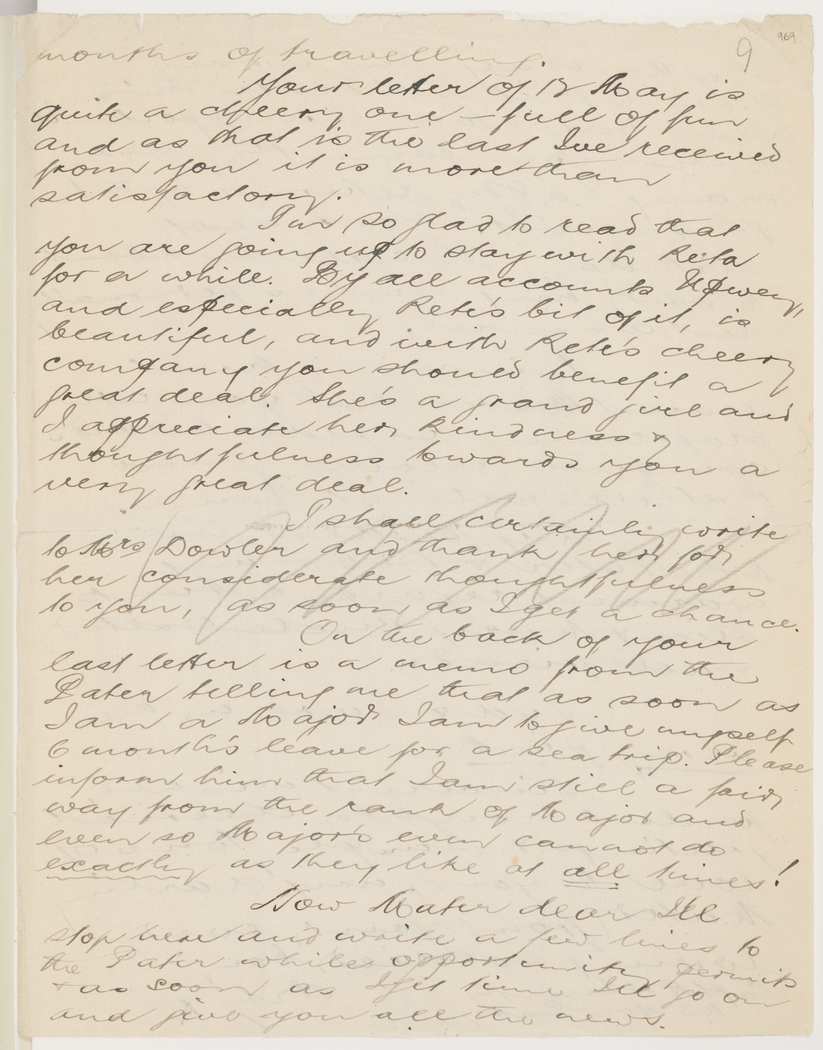 9
969
months of travelling.
Your letter of 12 May is
quite a cheery one - full of fun
and as that is the last I've received
from you it is more than
satisfactory.
I'm so glad to read that
you are going up to stay with Reta
for a while. By all accounts Upwey,
and especially Rete's bit of it, is
beautiful, and with Rete's cheery
company you should benefit a
great deal. She's a grand girl and
I appreciate her kindness &
thoughtfulness towards you a
very great deal.
I shall certainly write
to Mrs Dowler and thank her for
her considerate thoughtfulness
to you, as soon as I get a chance.
On the back of your
last letter is a memo from the
Pater telling me that as soon as
I am a Major I am to give myself
6 month's leave for a sea trip. Please
inform him that I am still a fair
way from the rank of Major and
even so Major's even cannot do
exactly as they like at all times!
Now Mater dear I'll
stop here and write a few lines to
the Pater while opportunity permits
+ as soon as I get time I'll go on
and give you all the news.